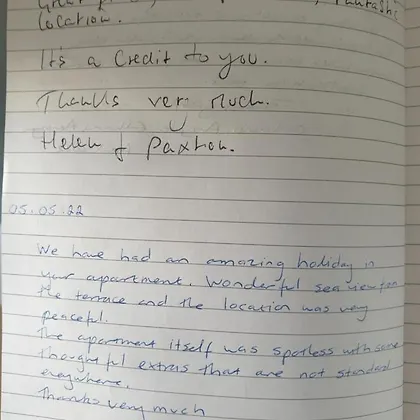 Great , Fantastic
location.
It's a Credit to you.
Thanks very much.
Helen & Paxton.
05.05.22
We have had an amazing holiday in
your apartment. Wonderful sea view from
the terrace and the location was very
peaceful.
The apartment itself was spotless with some
thoughtful extras that are not standard
everywhere.
Thanks very much